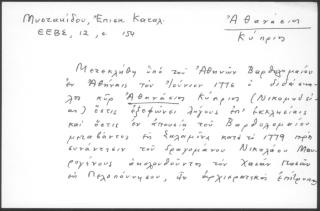 Μυστακίδου, Ἐπισκ. Καταλ.
ΕΕΒΣ, 12, σ 154
Ἀθανάσιος
Κύπριος
Μετεκλήθη ὑπὸ τοῦ Ἀθηνῶν Βαρθολομαίου
ἐν Ἀθήναις τὸν Ἰούνιον 1776 ὁ διδάσκα-
λος κὺρ Ἀθανάσιος Κύπριος (Νικομηδεί-
ας) ὅστις ἐξεφώνει λόγους ἐπ' ἐκκλησίαις
καὶ ὅστις ἐν ἀπουσίᾳ τοῦ Βαρθολομαίου
μεταβάντος εἰς Σαλαμῖνα κατὰ τὸ 1779 πρὸς
συνάντησιν τοῦ δραγομάνου Νικολάου Μαυ-
ρογένους ἀκολουθοῦντος τὸν Χασὰν Πασᾶν
εἰς Πελοπόννησον, ὡς ἀρχιερατικὸς ἐπίτροπος